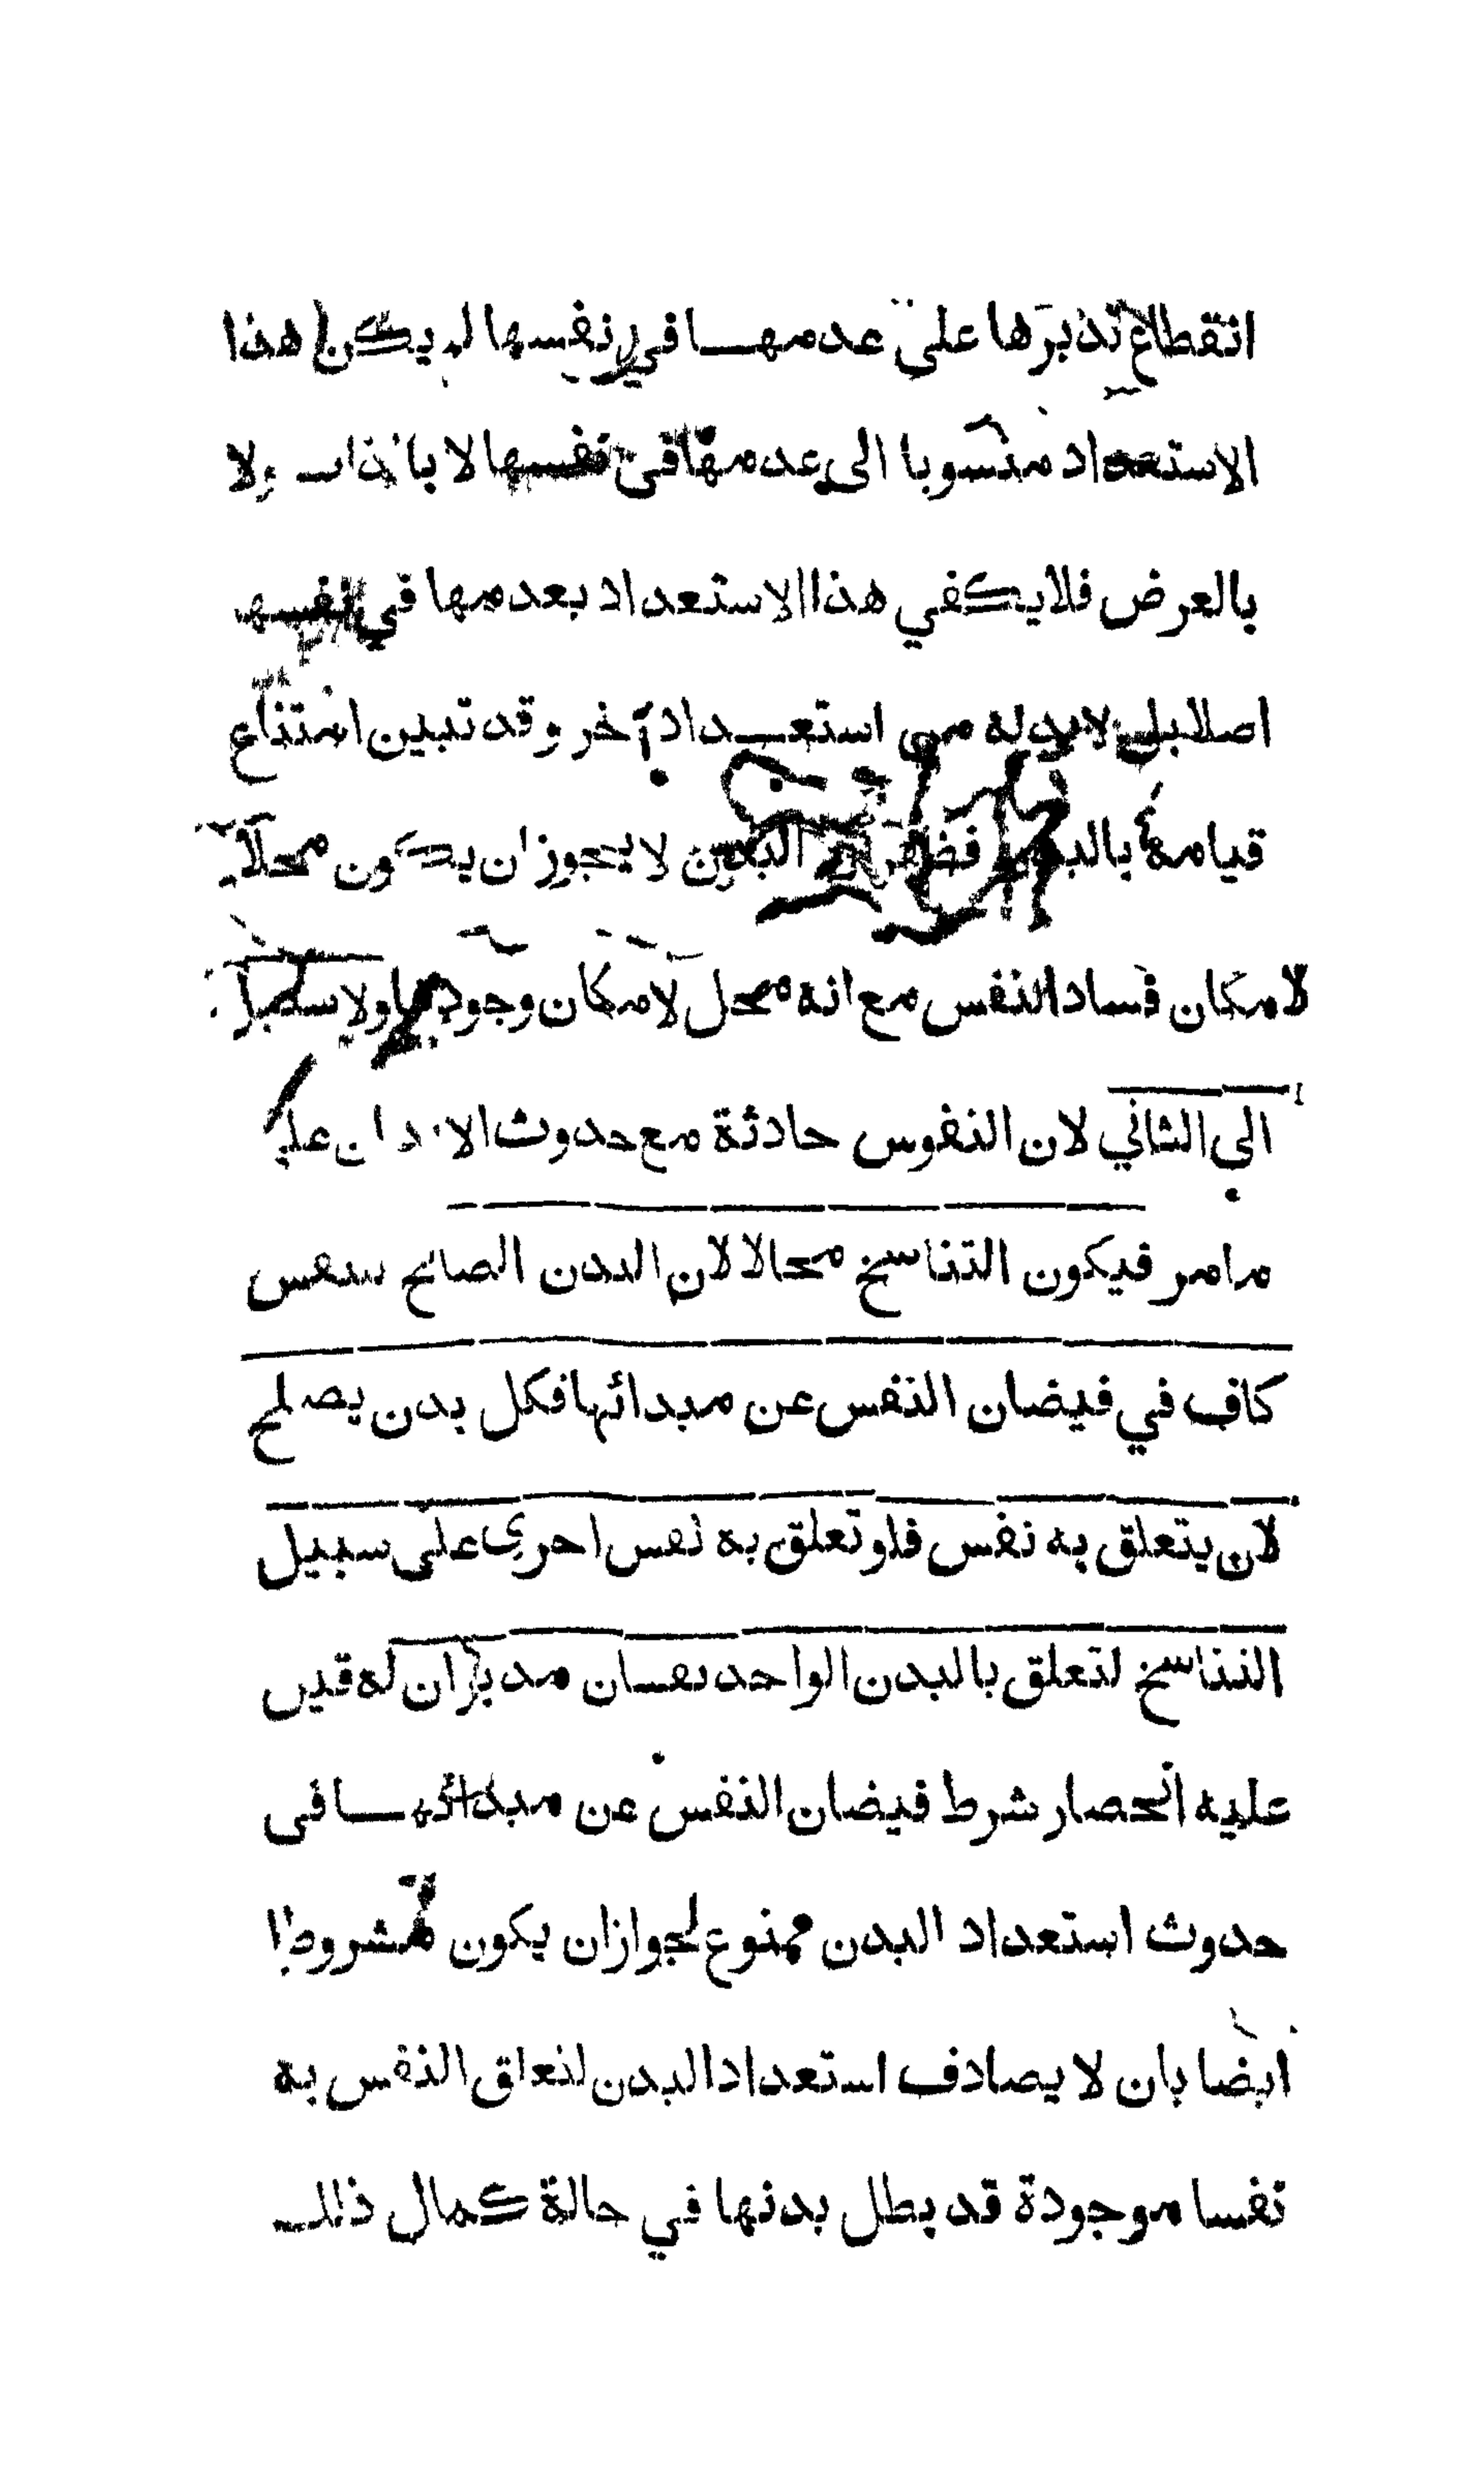 انقطاع تدبرها على عدمها في نفسها لم يكن هذا
الاستعداد منسوبا الى عدمها في نفسها لا بالذات ولا
بالعرض فلا يكفي هذا الاستعداد بعدمها في نفسها
اصلا بل لا بد له من استعداد آخر وقد تبين امتناع
قيامه بالبدن فظهر ان البدن لا يجوز ان يكون محلا
لامكان فساد النفس مع انه محل لامكان وجودها ولا سبيل
الى الثاني لان النفوس حادثة مع حدوث الابدان على
ما مر فيكون التناسخ محالا لان البدن الصالح لنفس
كاف في فيضان النفس عن مبدائها فكل بدن يصلح
لان يتعلق به نفس فلو تعلق به نفس اخرى على سبيل
التناسخ لتعلق بالبدن الواحد نفسان مدبران له قيل
عليه انحصار شرط فيضان النفس عن مبدائها في
حدوث استعداد البدن ممنوع لجواز ان يكون مشروطا
ايضا بان لا يصادف استعداد البدن لتعلق النفس به
نفسا موجودة قد بطل بدنها في حالة كمال ذلك